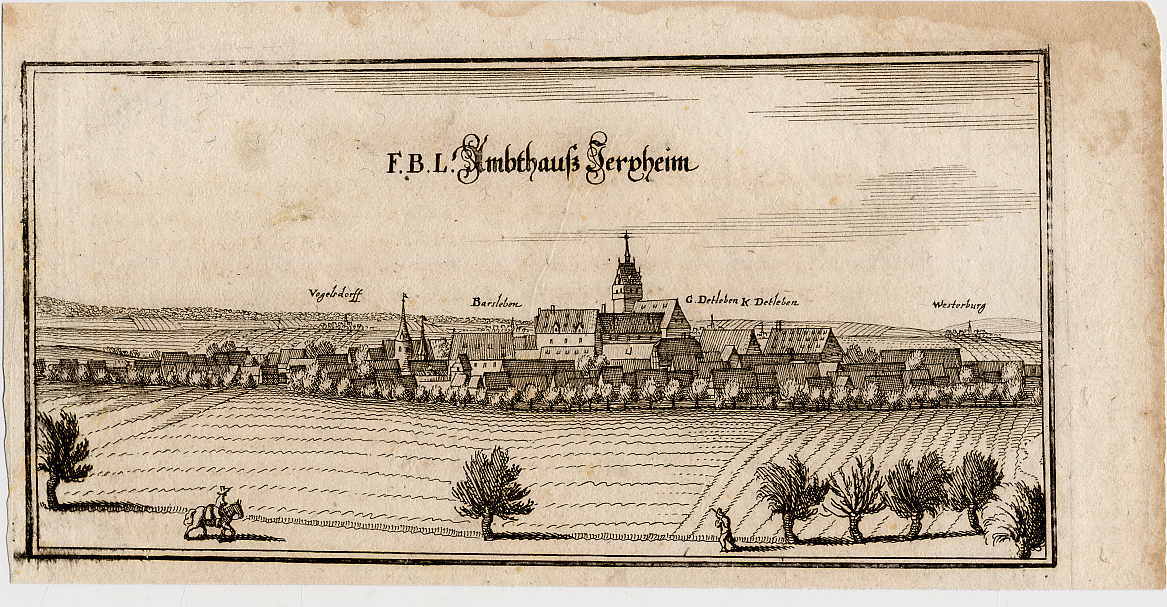 F. B. L. Ambthauß Jerxheim
Vogelsdorff
Barsleben
G. Detleben K Detleben
Westerburg